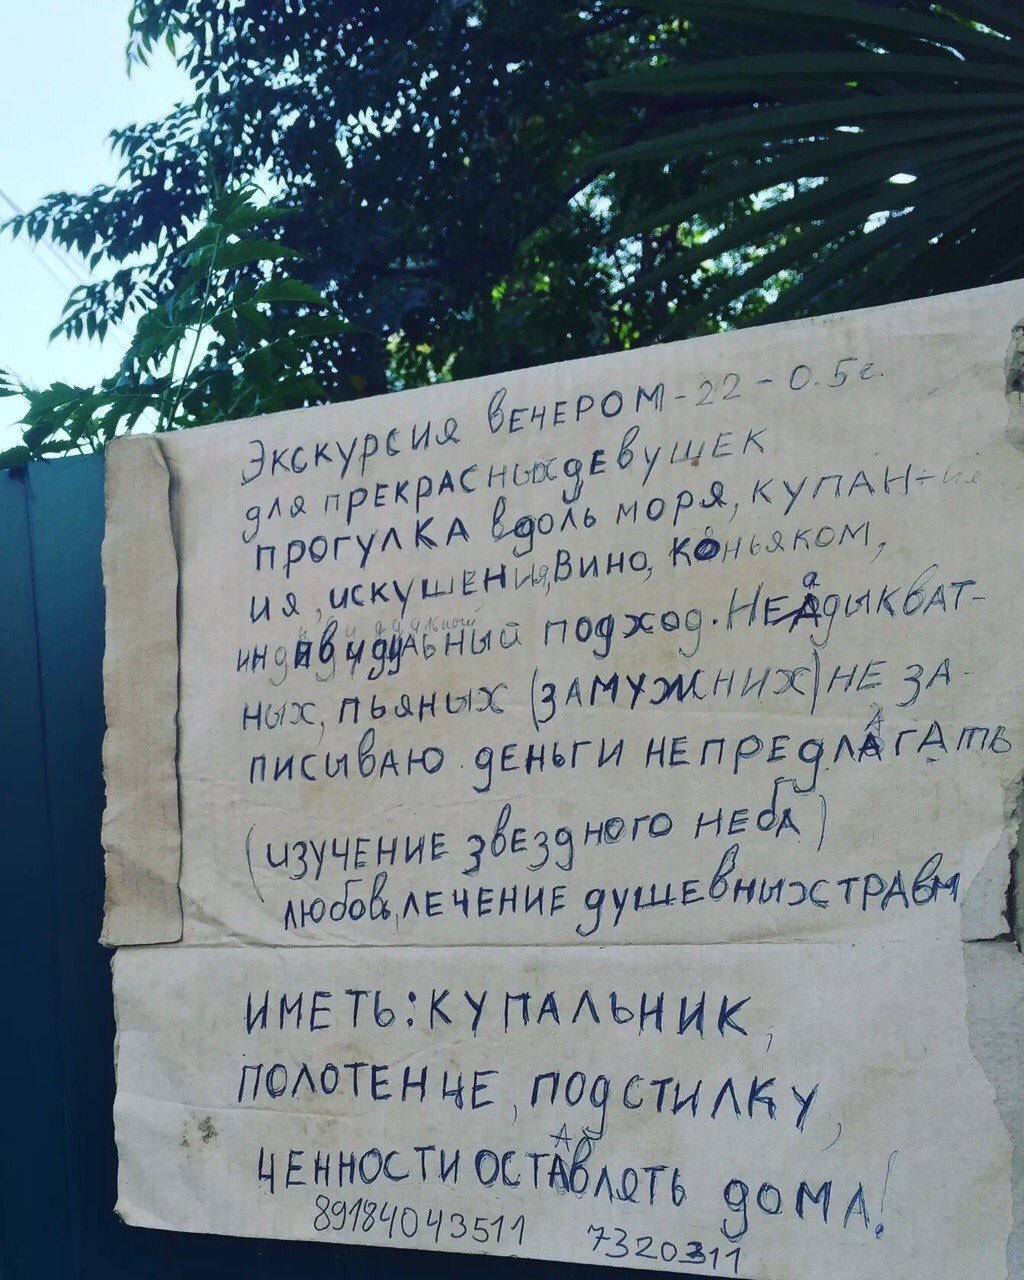 Экскурсия вечером - 22 - 0.5 г.
для прекрасных девушек
прогулка вдоль моря, купан-ия
ия, искушения, вино, коньяком,
индивидуальный подход. Неадыкват-
ных, пьяных (замужних) не за-
писываю деньги не предлагать
(изучение звездного неба)
любовь, лечение душевных травм
иметь: купальник,
полотенце, подстилку,
ценности оставлять дома!
89184043511 7320311